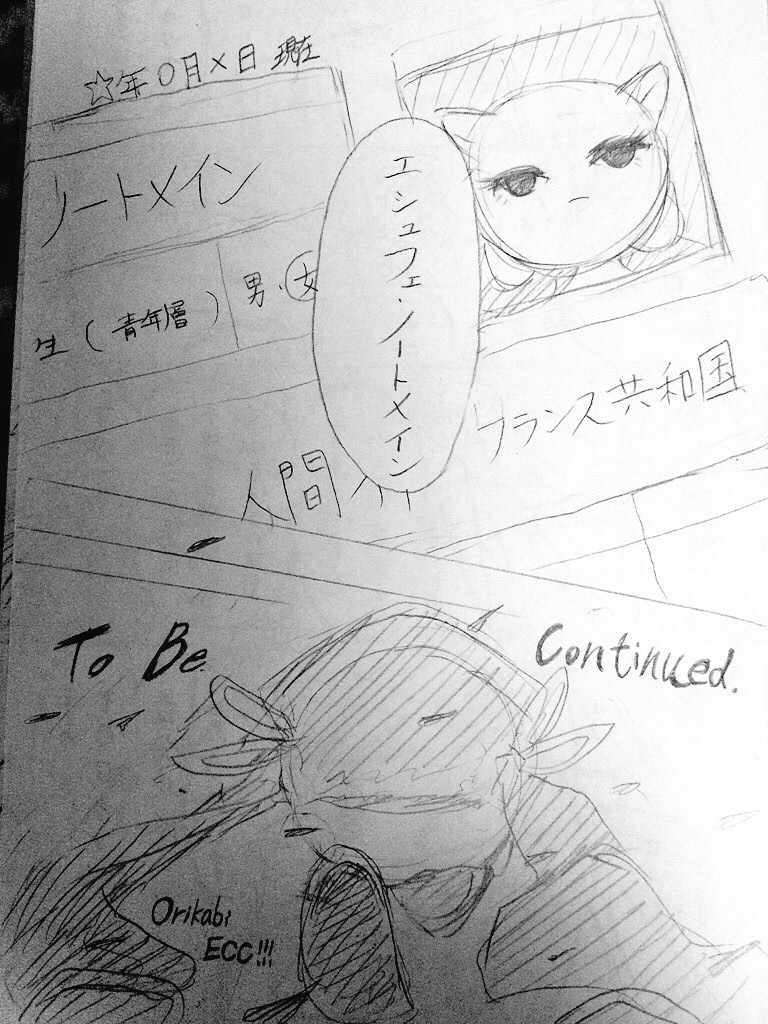 ☆年〇月×日 現在
ノートメイン
生(青年層)
男・女
エシュフェ・ノートメイン
人間
フランス共和国
To Be
Continued.
Orikabi
ECC!!!